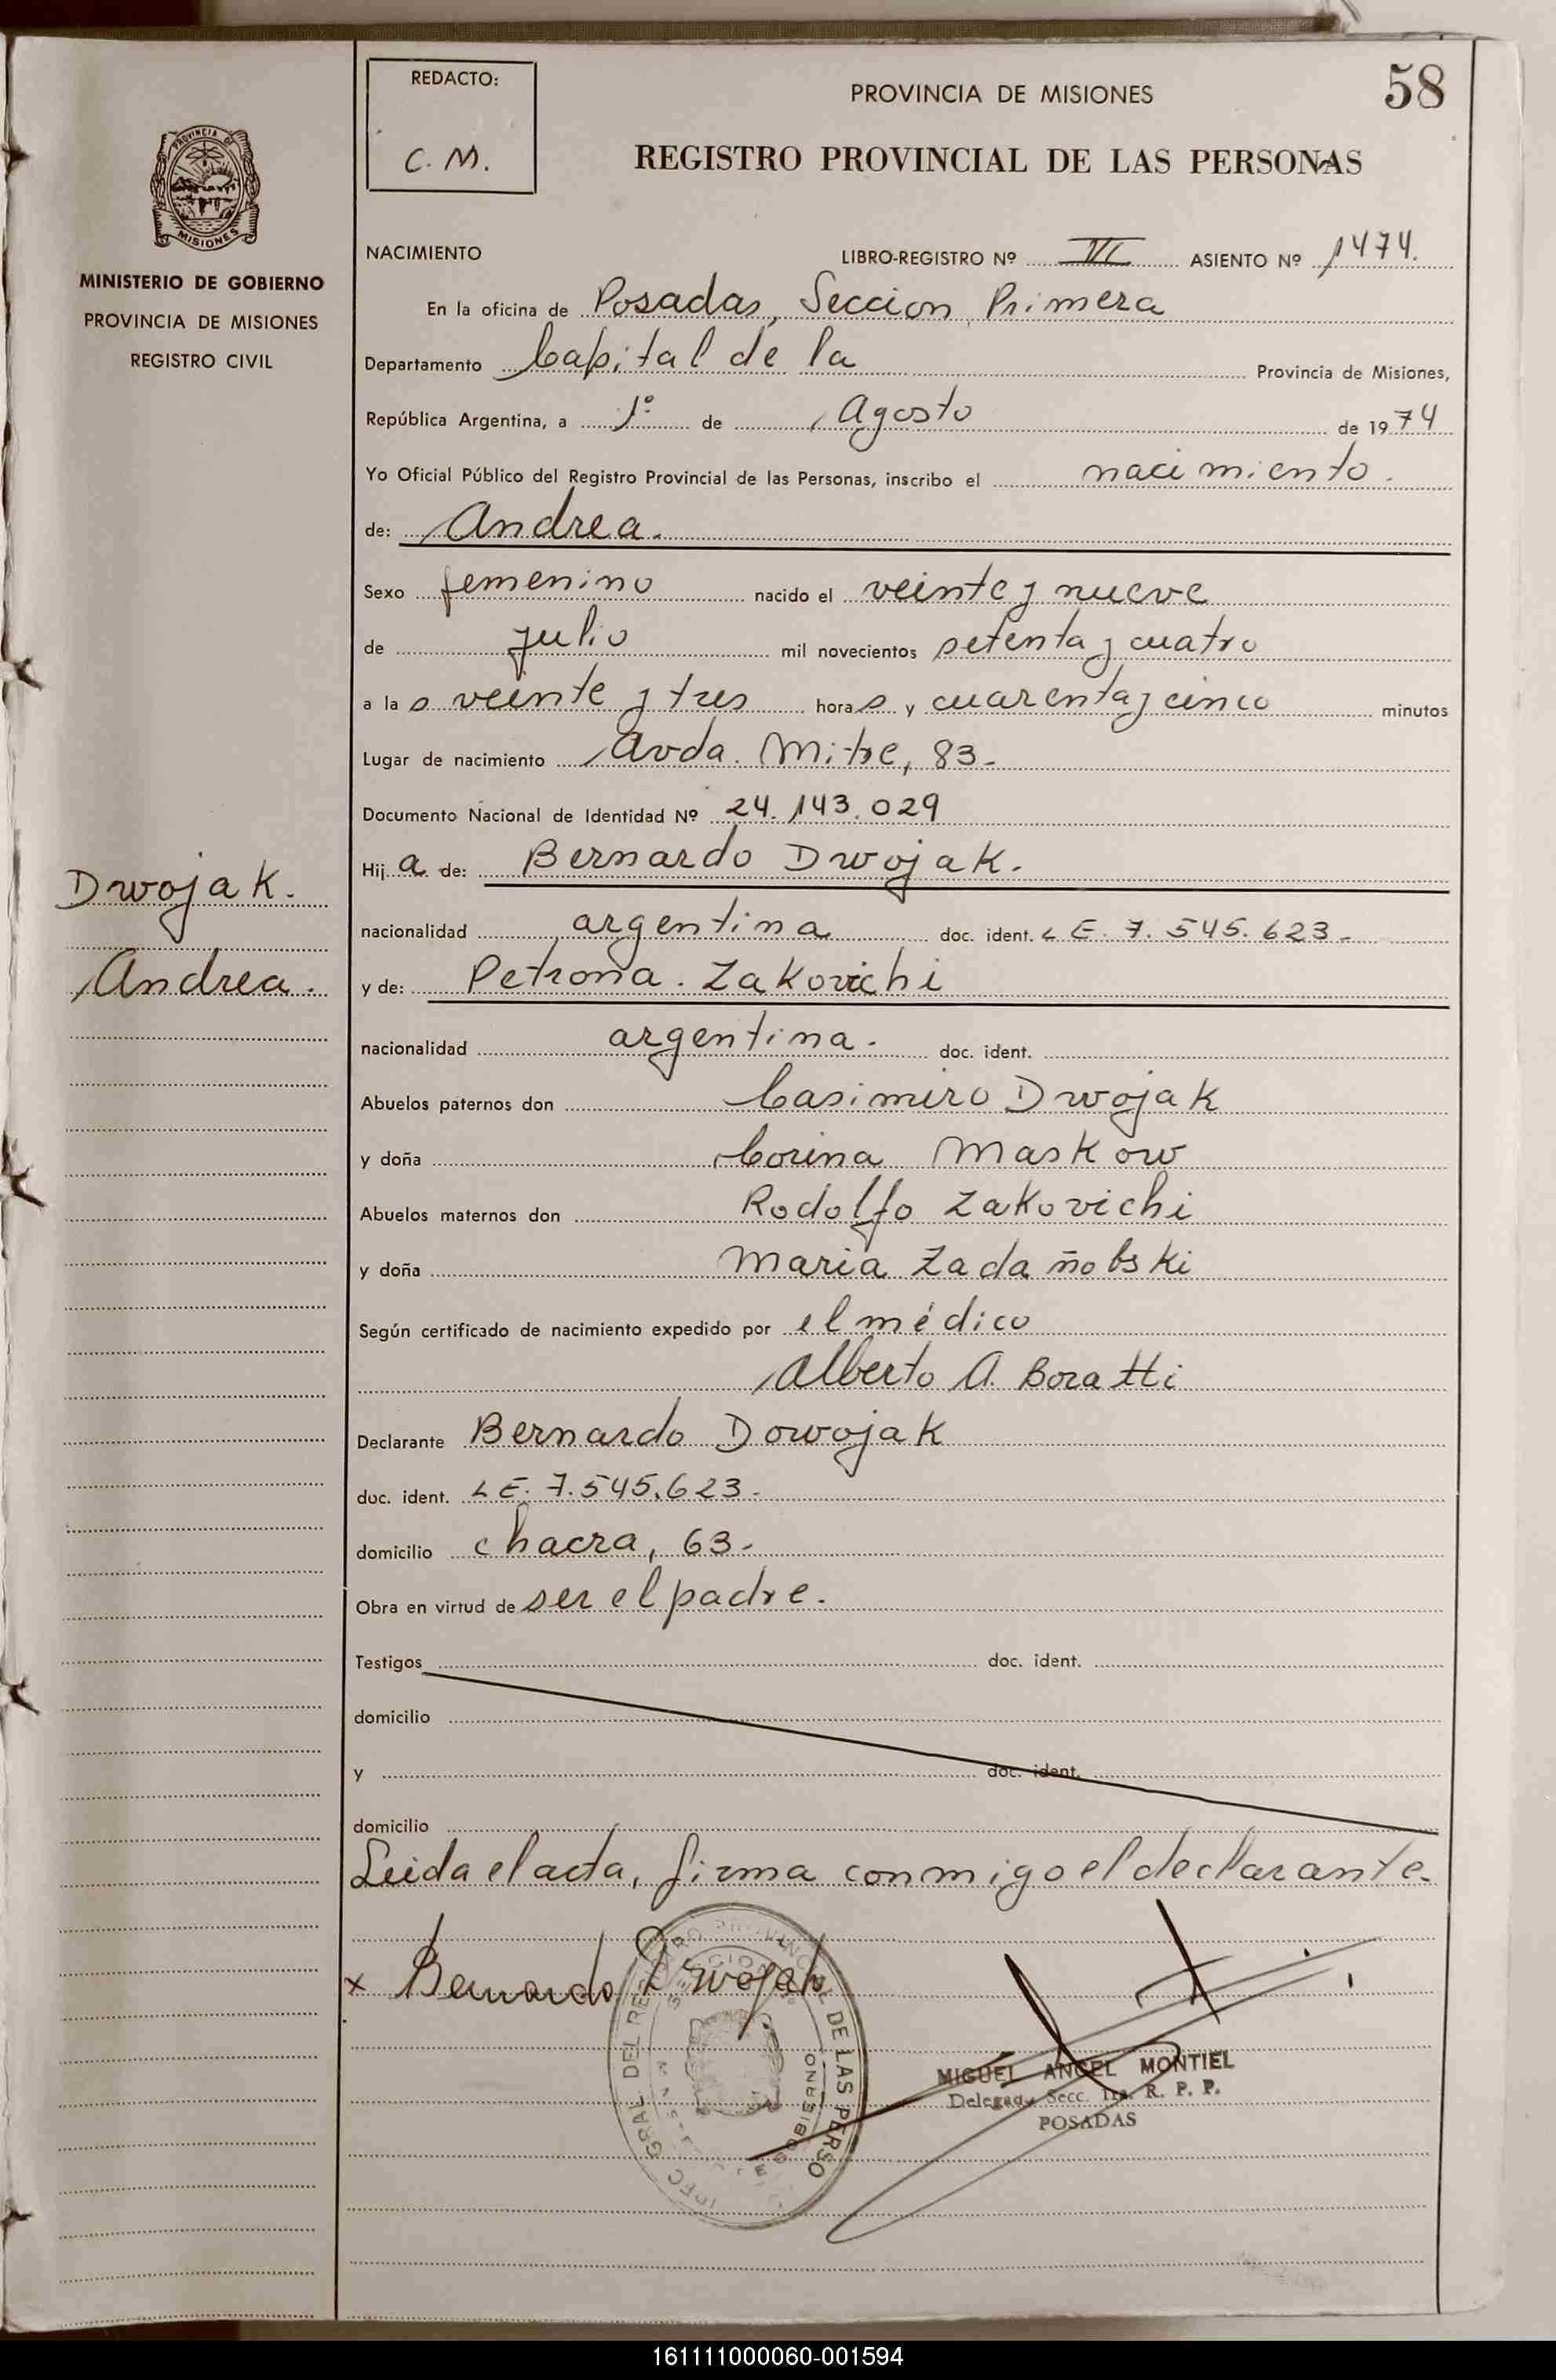 REDACTO:
C. M.
PROVINCIA DE MISIONES
58
REGISTRO PROVINCIAL DE LAS PERSONAS
PROVINCIA DE
MISIONES
MINISTERIO DE GOBIERNO
PROVINCIA DE MISIONES
REGISTRO CIVIL
NACIMIENTO
LIBRO-REGISTRO Nº VI ASIENTO Nº 1474.
En la oficina de Posadas, Seccion Primera
Departamento Capital de la Provincia de Misiones,
República Argentina, a 1º de Agosto de 1974
Yo Oficial Público del Registro Provincial de las Personas, inscribo el nacimiento.
de: Andrea.
Sexo femenino nacido el veinte y nueve
de julio mil novecientos setenta y cuatro
a las veinte y tres horas y cuarenta y cinco minutos
Lugar de nacimiento Avda. Mitre, 83-
Documento Nacional de Identidad Nº 24.143.029
Hija de: Bernardo Dwojak.
Dwojak.
Andrea.
nacionalidad argentina doc. ident. LE. 7.545.623-
y de: Petrona. Zakovichi
nacionalidad argentina. doc. ident.
Abuelos paternos don Casimiro Dwojak
y doña Corina Maskow
Abuelos maternos don Rodolfo Zakovichi
y doña Maria Zadañobski
Según certificado de nacimiento expedido por el médico
Alberto A. Boratti
Declarante Bernardo Dowojak
doc. ident. LE. 7.545.623-
domicilio chacra, 63-
Obra en virtud de ser el padre.
Testigos doc. ident.
domicilio
y doc. ident.
domicilio
Leida el acta, firma conmigo el declarante.
x Bernardo Dwojak
GRAL DEL REGISTRO PROVINCIAL DE LAS PERSO
SECCION
GOBIERNO
MIGUEL ANGEL MONTIEL
Delegado Secc. 1ra. R. P. P.
POSADAS
161111000060-001594